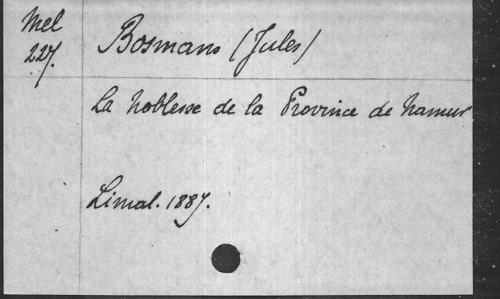 Mel
227.
Bosmans (Jules)
La Noblesse de la Province de Namur
Limal. 1887.